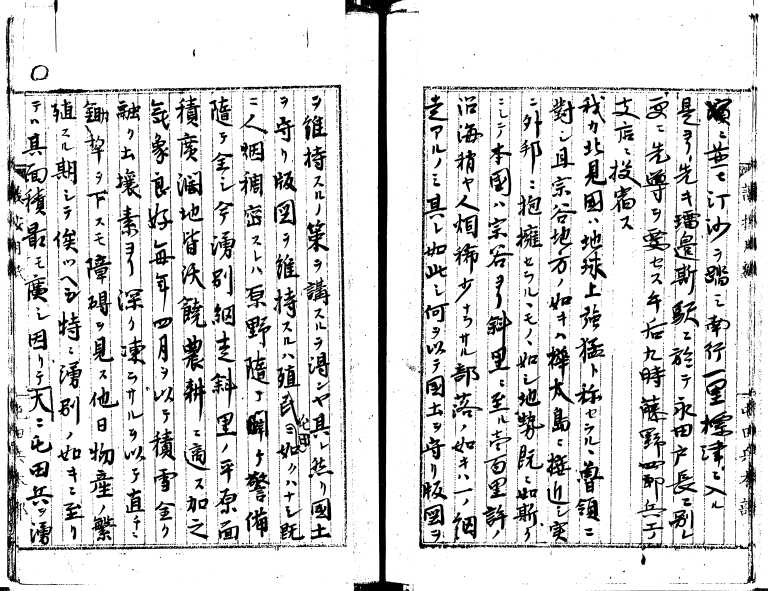 濱ニ並ヒ汀沙ヲ踏ミ南行一里標津ニ入ル
是ヨリ先キ斯駅ニ於テ永田戸長ニ別レ
更ニ先導ヲ要セス午后九時藤野四郎兵エノ
支店ニ投宿ス
我カ北見国ハ地球上強猛ト称セラルヽ魯領ニ
對シ且宗谷地方ノ如キハ樺太島ニ接近シ実
ニ外邦ニ抱擁セラルヽモノヽ如シ地勢既ニ如斯
ニシテ本國ハ宗谷ヨリ斜里ニ至ル壱百里許ノ
沿海稍ヤ人烟稀少ナラサル部落ノ如キハ一ノ網
走アルノミ其レ如此シ何ヲ以テ国土ヲ守リ版図ヲ
ヲ維持スルノ策ヲ講スルヲ得ンヤ其レ然リ國土
ヲ守リ版図ヲ維持スルハ殖民ニ如クハナシ既
屯田
ニ人烟稠密スレハ原野隨テ開ケ警備
隨テ全シ今湧別網走斜里ノ平原面
積廣濶地皆沃饒農耕ニ適ス加之
気象良好毎年四月ヲ以テ積雪全ク
融ケ土壌素ヨリ深ク凍ラサルヲ以テ直チニ
鋤犂ヲ下スモ障碍ヲ見ス他日物産ノ繁
殖スル期シテ俟ツヘシ特ニ湧別ノ如キニ至リ
テハ其面積最モ廣シ因リテ大ニ屯田兵ヲ湧